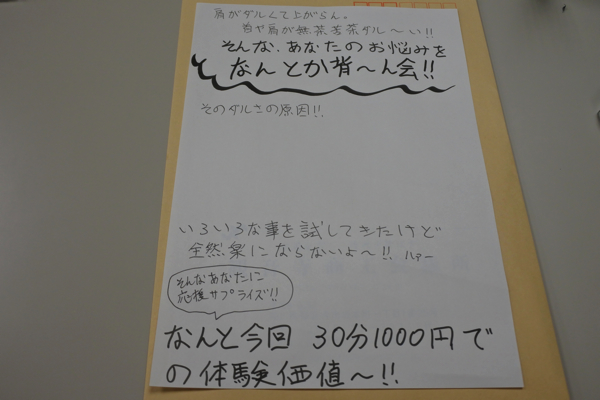 肩がダルくて上がらん。
首や肩が無茶苦茶ダル〜い!!
そんな、あなたのお悩みを
なんとか背〜ん会!!
そのダルさの原因!!
いろいろな事を試してきたけど
全然楽にならないよ〜!! ハァー
そんなあなたに
応援サプライズ!!
なんと今回 30分1000円で
の体験価値〜!!